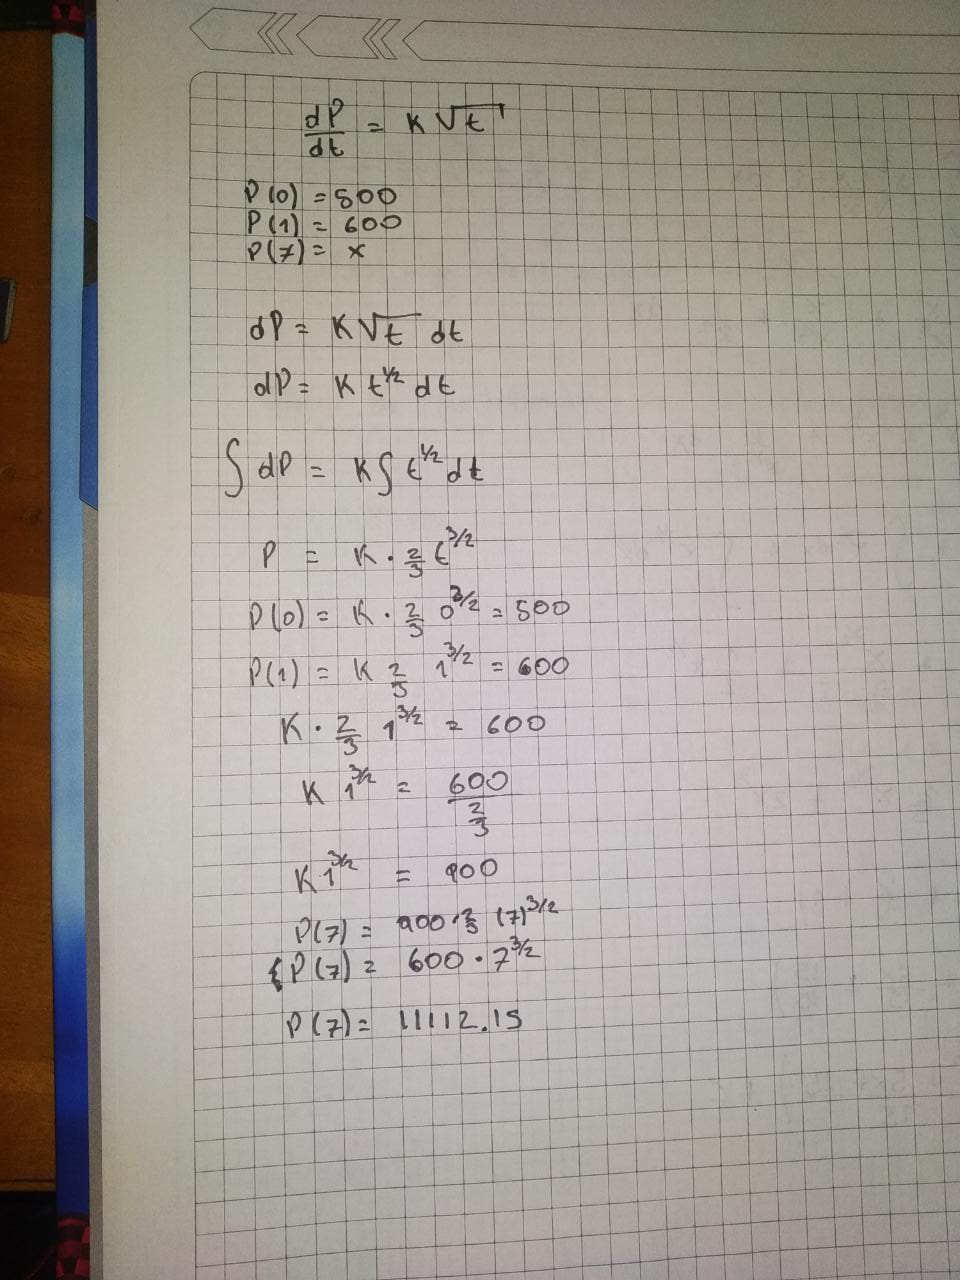 dP/dt = K √t
P(0) = 500
P(1) = 600
P(7) = x
dP = K √t dt
dP = K t^1/2 dt
∫ dP = K ∫ t^1/2 dt
P = K · 2/3 t^3/2
P(0) = K · 2/3 0^3/2 = 500
P(1) = K 2/3 1^3/2 = 600
K · 2/3 1^3/2 = 600
K 1^3/2 = 600/(2/3)
K 1^3/2 = 900
P(7) = 900 · 2/3 (7)^3/2
P(7) = 600 · 7^3/2
P(7) = 11112.15